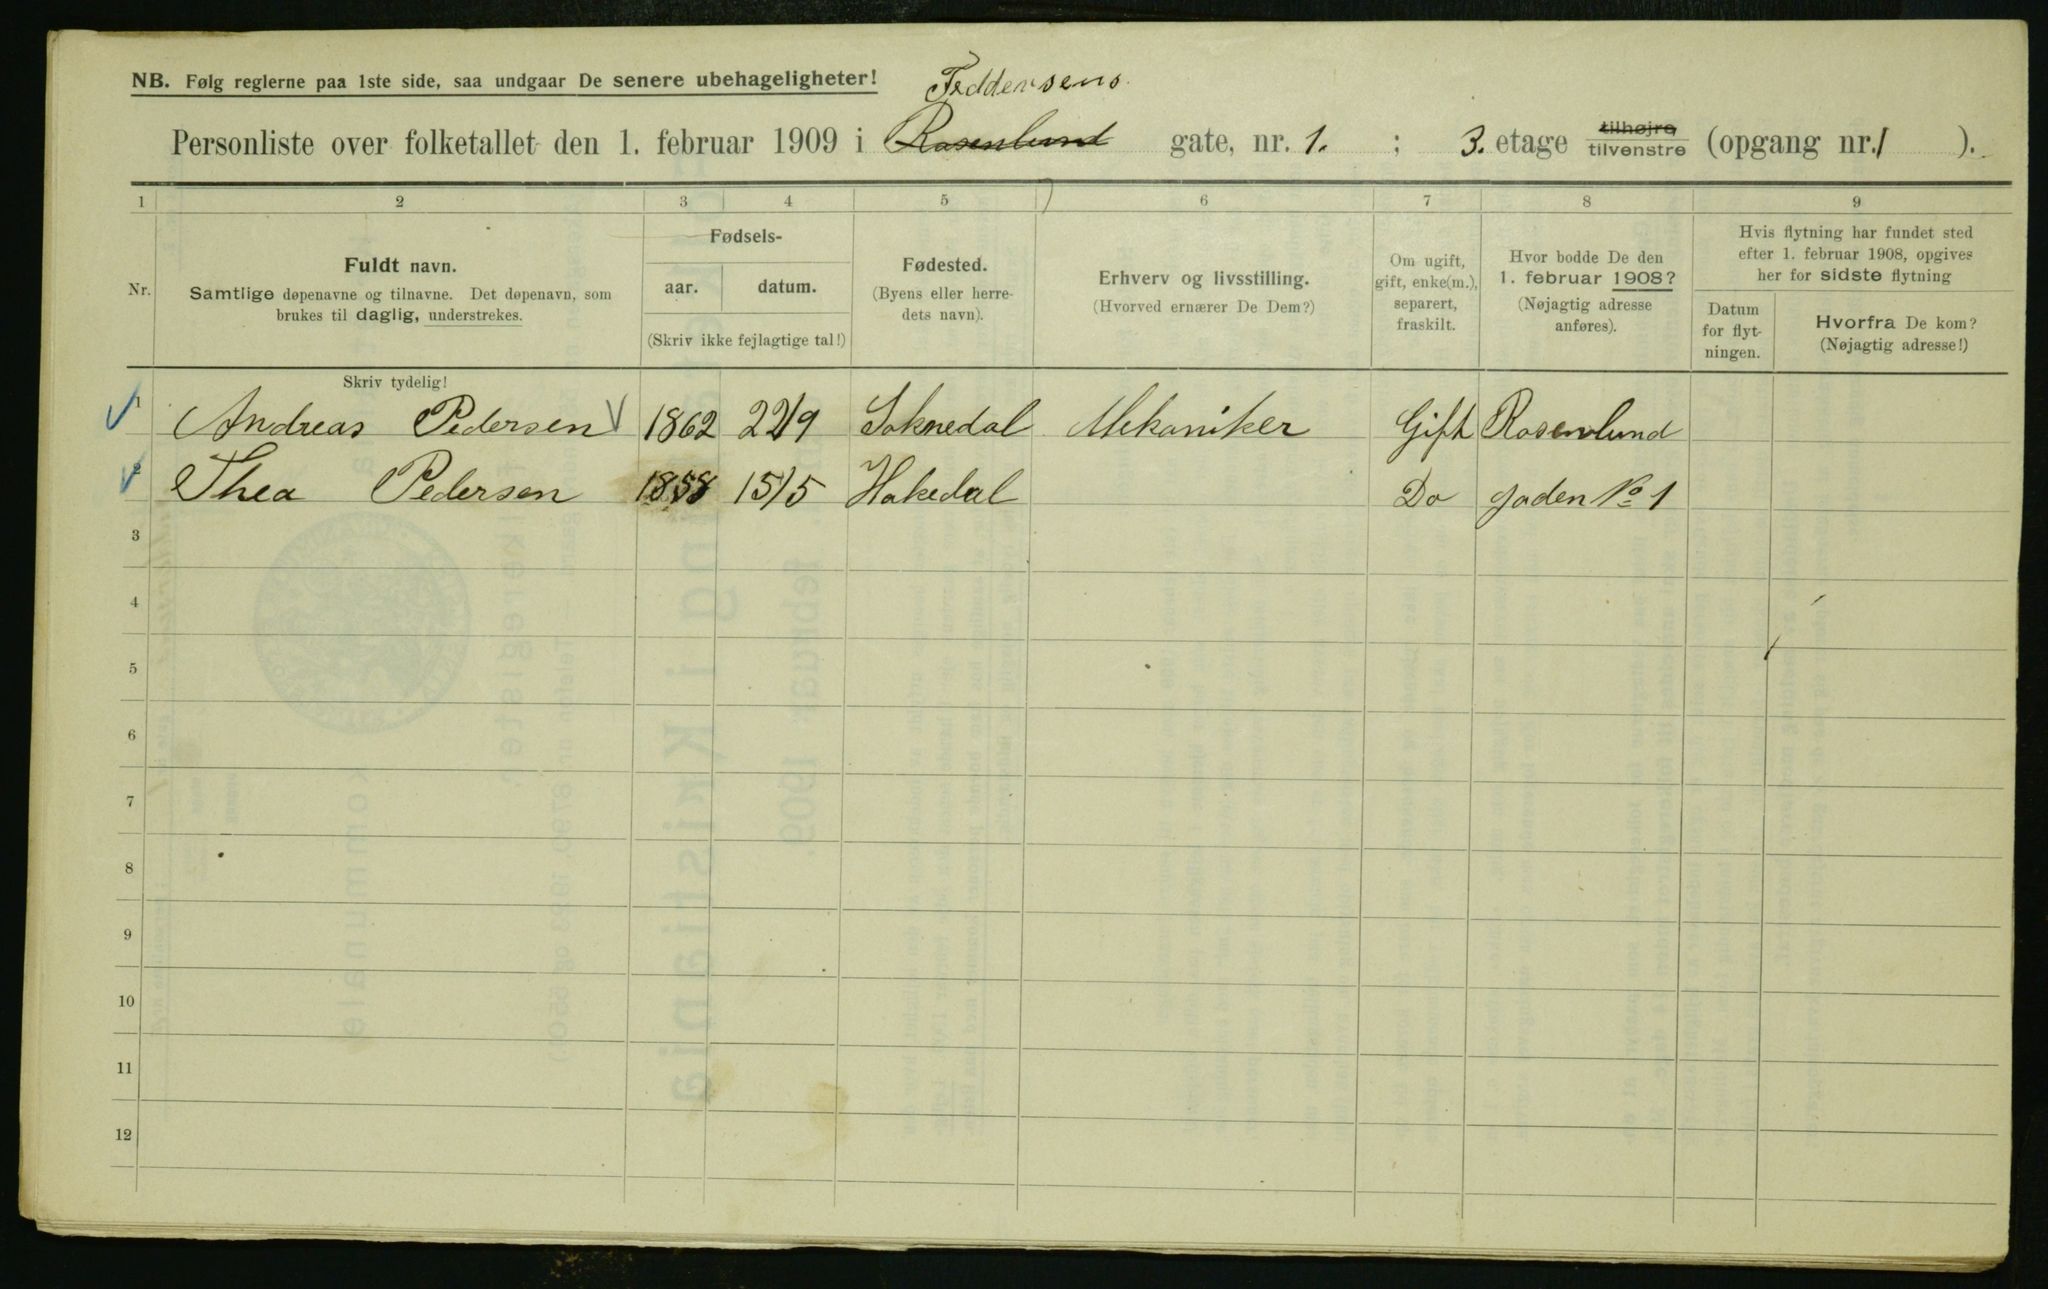 NB. Følg reglerne paa 1ste side, saa undgaar De senere ubehageligheter!
Feddersens
Personliste over folketallet den 1. februar 1909 i Rosenlund gate, nr. 1. ; 3. etage tilhøjre tilvenstre (opgang nr. 1 ).
1 2 3 4 5 6 7 8 9
Nr.
Fuldt navn.
Samtlige døpenavne og tilnavne. Det døpenavn, som
brukes til daglig, understrekes.
Fødsels-
aar. datum.
(Skriv ikke fejlagtige tal!)
Fødested.
(Byens eller herre-
dets navn).
Erhverv og livsstilling.
(Hvorved ernærer De Dem?)
Om ugift,
gift, enke(m.),
separert,
fraskilt.
Hvor bodde De den
1. februar 1908?
(Nøjagtig adresse
anføres).
Hvis flytning har fundet sted
efter 1. februar 1908, opgives
her for sidste flytning
Datum
for flyt-
ningen.
Hvorfra De kom?
(Nøjagtig adresse!)
Skriv tydelig!
1 Andreas Pedersen 1862 22/9 Soknedal Mekaniker Gift Rosenlund
2 Thea Pedersen 1858 15/5 Hakedal Do gaden No 1
3
4
5
6
7
8
9
10
11
12